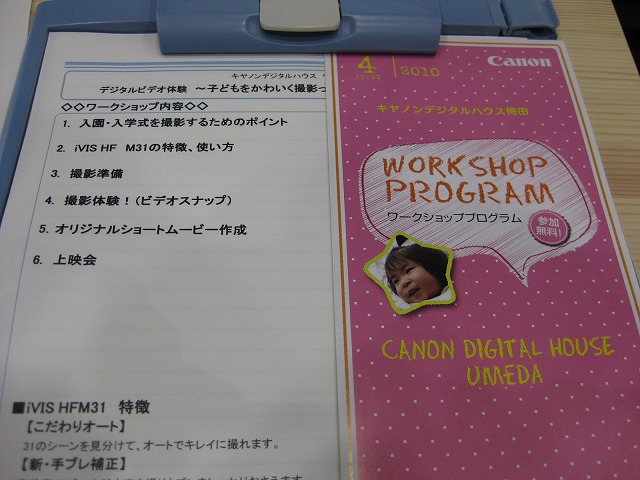 キヤノンデジタルハウス
デジタルビデオ体験 ～子どもをかわいく撮影っ
◇◇ワークショップ内容◇◇
1. 入園・入学式を撮影するためのポイント
2. iVIS HF M31の特徴、使い方
3. 撮影準備
4. 撮影体験!(ビデオスナップ)
5. オリジナルショートムービー作成
6. 上映会
■iVIS HFM31 特徴
【こだわりオート】
31のシーンを見分けて、オートでキレイに撮れます。
【新・手ブレ補正】
4 2010
Canon
キヤノンデジタルハウス梅田
WORKSHOP
PROGRAM
ワークショッププログラム
参加
無料!
CANON DIGITAL HOUSE
UMEDA